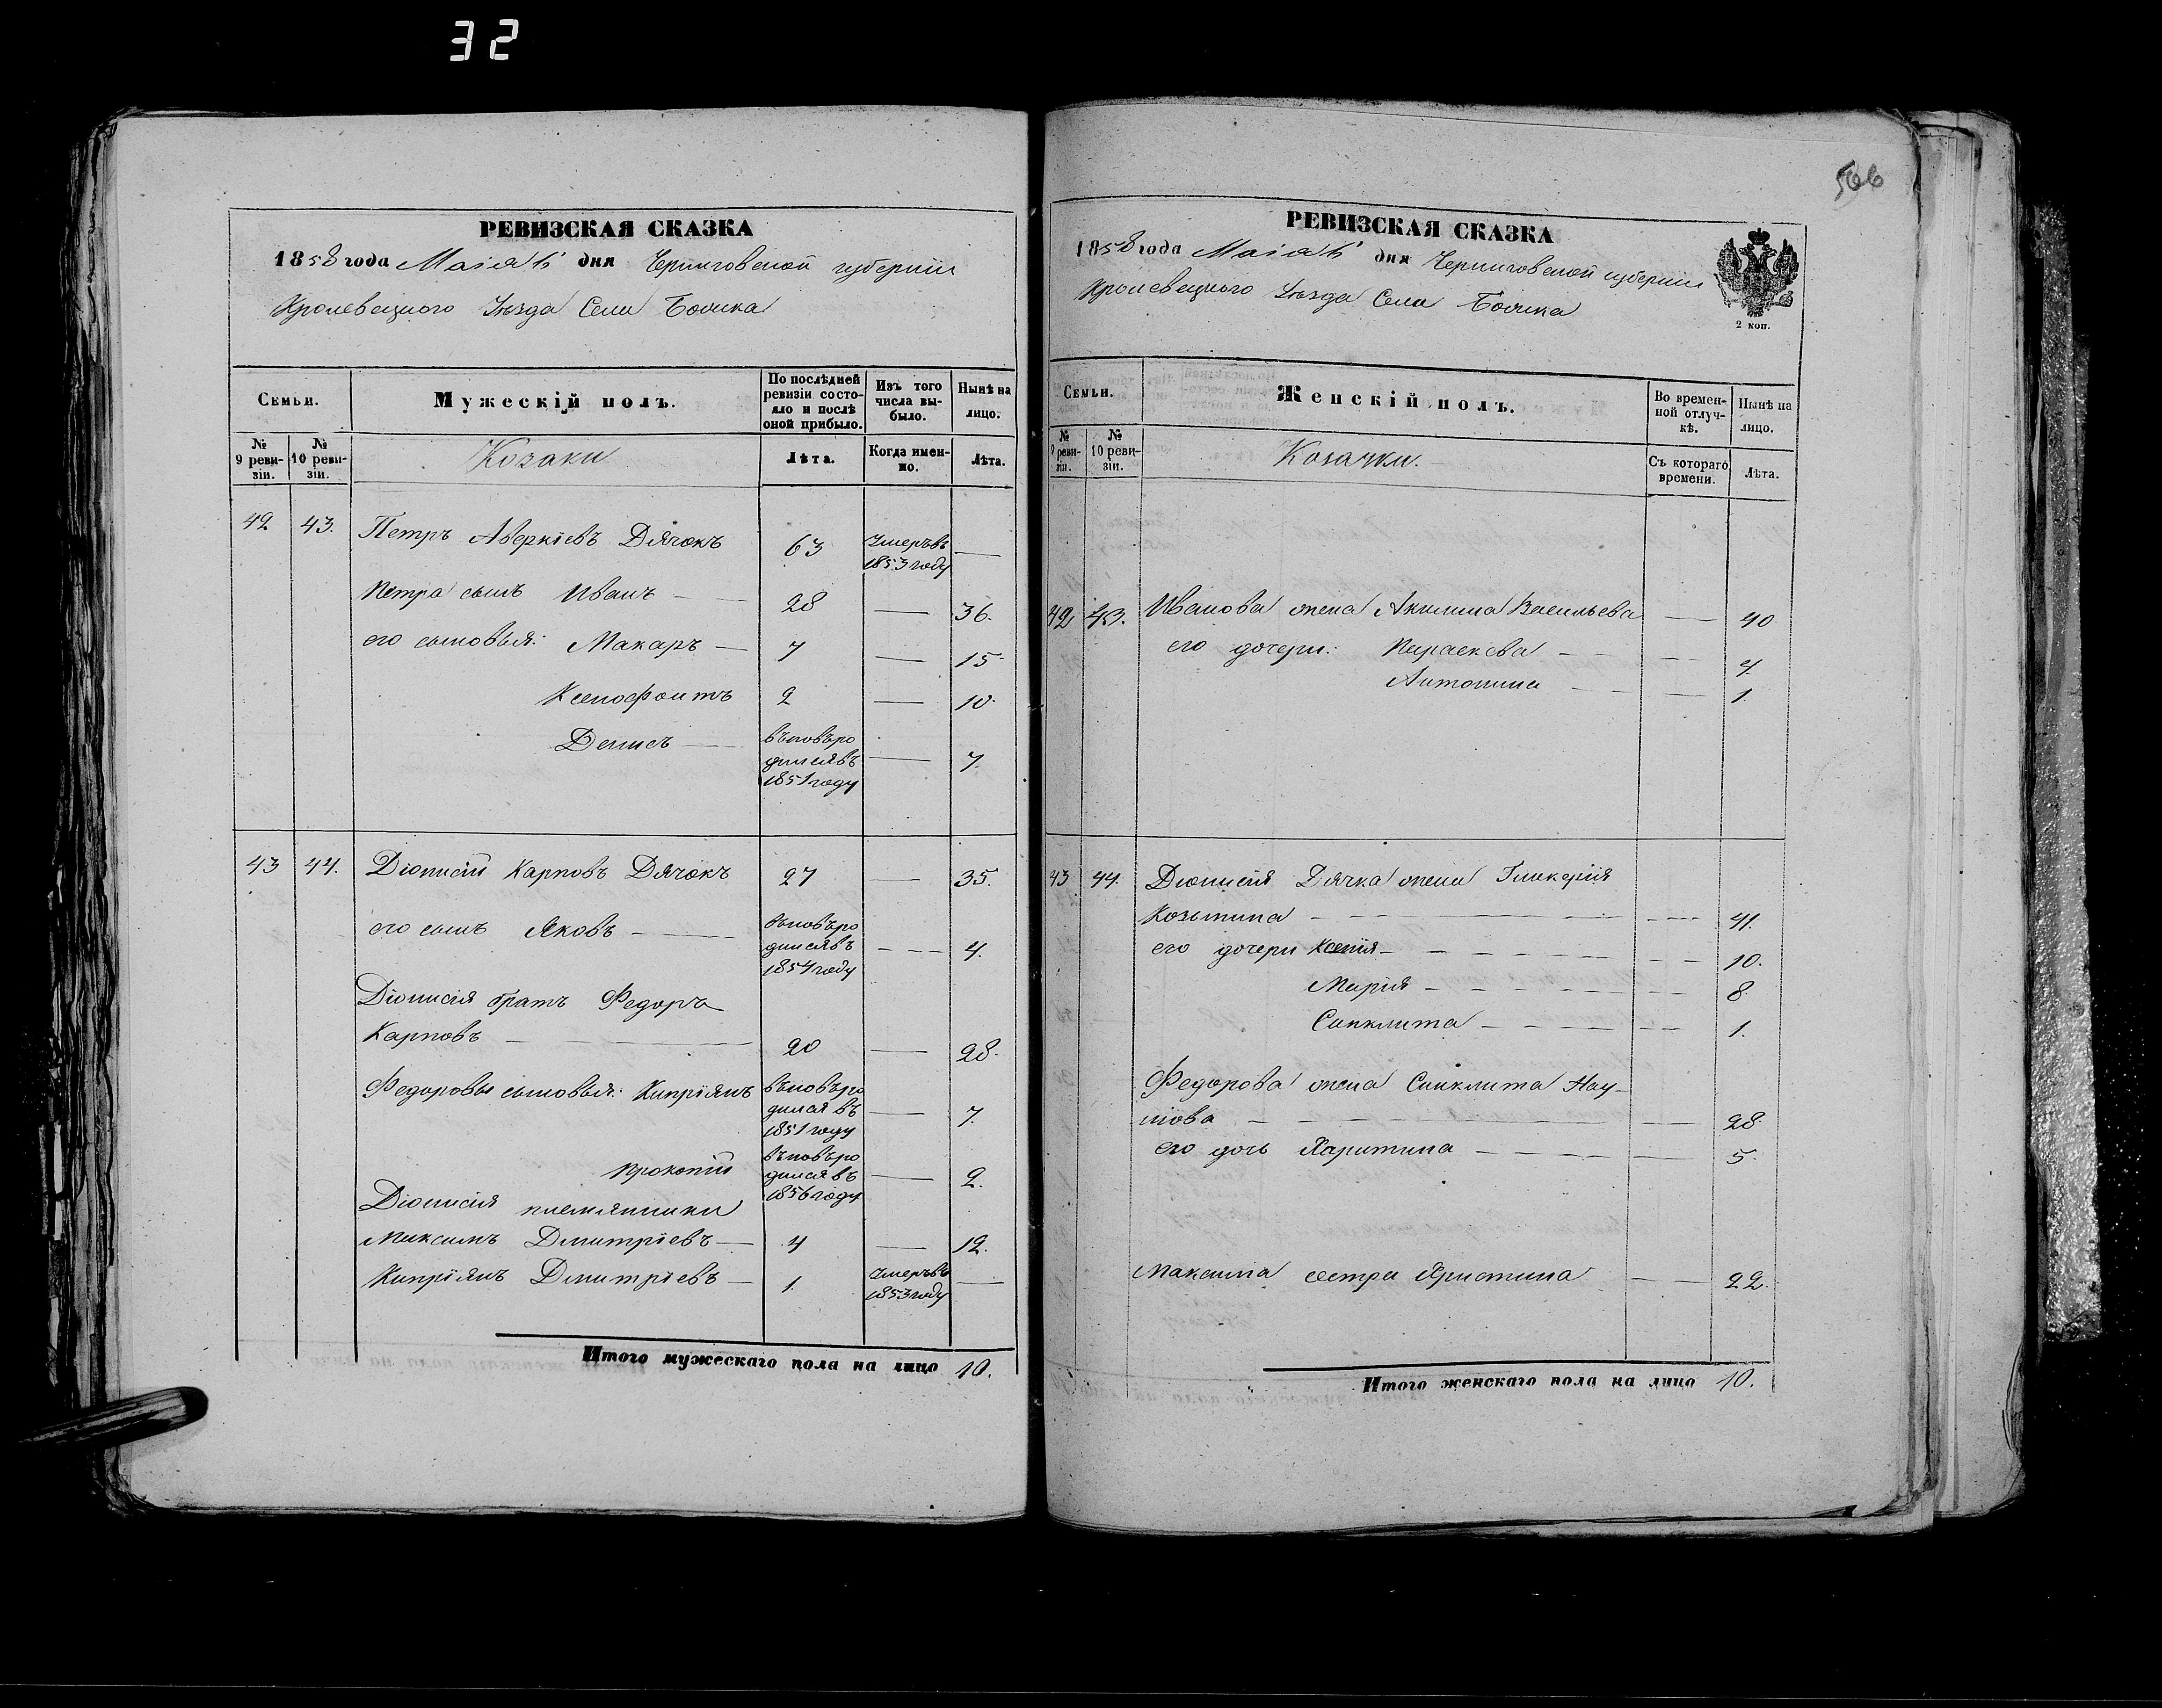 32
566
РЕВИЗСКАЯ СКАЗКА
1858 года Маія 16 дня Черниговской губерніи
Кролевецкаго Уѣзда Села
Семьи.
Мужескій полъ.
По послѣдней ревизіи состо-
яло и послѣ оной прибыло.
Изъ того числа вы-
было.
Нынѣ на лицо.
№ 9 реви-
зіи.
№ 10 реви-
зіи.
Козаки
Лѣта.
Когда имен-
но.
Лѣта.
42 43. Петръ Аверкіевъ Дячокъ 63 Умеръ въ 1853 году —
Петра сынъ Иванъ — 28 — 36.
его сыновья: Макаръ — 7 — 15.
Ксенофонтъ 2 — 10.
Денисъ — вновь ро
дился въ — 7.
1851 году
43 44. Діонисій Карповъ Дячокъ 27 — 35.
его сынъ Яковъ — вновь ро
дился въ — 4.
1854 году
Діонисія братъ Федоръ
Карповъ — 20 — 28.
Федоровы сыновья: Кипріянъ вновь ро
дился въ — 7.
1851 году
Прокопій вновь ро
дился въ — 2.
1856 году
Діонисія племянники
Максимъ Дмитріевъ — 4 — 12.
Кипріянъ Дмитріевъ — 1. Умеръ въ 1853 году —
Итого мужескаго пола на лицо 10.
РЕВИЗСКАЯ СКАЗКА
1858 года Маія 16 дня Черниговской губерніи
Кролевецкаго Уѣзда Села
2 коп.
Семьи.
Женскій полъ.
Во времен-
ной отлуч-
кѣ.
Нынѣ на лицо.
№ 9 реви-
зіи.
№ 10 реви-
зіи.
Козачки.
Съ котораго времени.
Лѣта.
42 43. Иванова жена Акилина Васильева — 40
его дочери: Параскева — 4.
Антонина — 1.
43 44. Діонисія Дячка жена Гликерія
Козьмина — 41.
его дочери Ксенія — 10.
Марія — 8.
Синклита — 1.
Федорова жена Синклита Нау-
мова — 28.
его дочь Харитина — 5.
Максима сестра Христина — 22.
Итого женскаго пола на лицо 10.